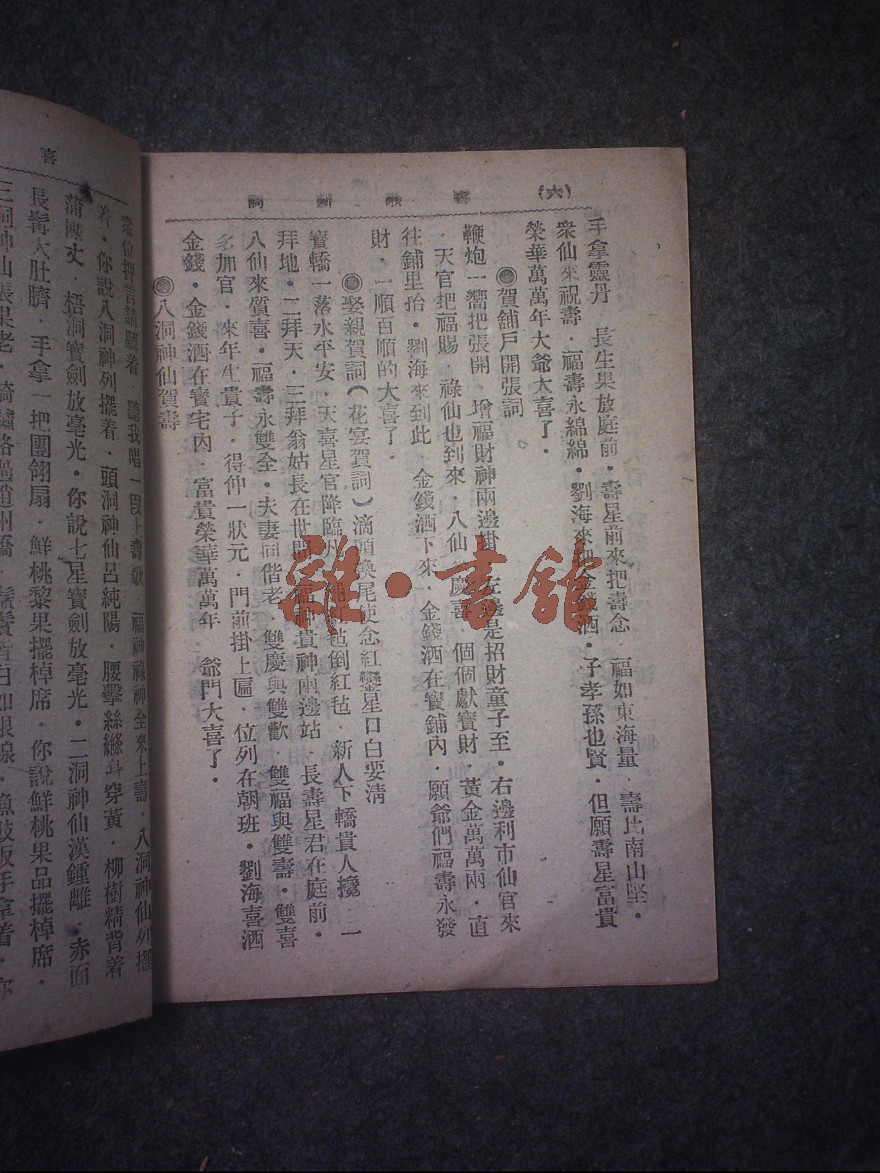 (六) 喜歌新詞
手拿靈丹 長生果放庭前．壽星前來把壽念．福如東海量．壽比南山堅．
衆仙來祝壽．福壽永綿綿．劉海來把金錢洒．子孝孫也賢．但願壽星富貴
榮華萬萬年大爺大喜了．
賀舖戶開張詞
鞭炮一嚮把張開．增福財神兩邊掛 左邊是招財童子至．右邊利市仙官來
．天官把福賜．祿仙也到來．八仙 慶喜．個個獻寶財．黃金萬萬兩．直
往鋪里抬．劉海來到此．金錢洒下來．金錢洒在寳鋪內．願爺們福壽永發
財．一順百順的大喜了．
娶親賀詞（花宴賀詞）滴頭喚尾使念紅鸞星口白要清
寳轎一落水平安．天喜星官降臨凡 毡倒紅毡．新人下轎貴人攙．一
拜地．二拜天．三拜翁姑長在世間 神貴神兩邊站．長壽星君在庭前．
八仙來賀喜．福壽永雙全．夫妻同偕老．雙慶與雙歡 雙福與雙壽．雙喜
加官．來年生貴子．得仲一狀元．門前掛上匾．位列在朝班．劉海喜洒
金錢．金錢洒在寳宅內．富貴榮華萬萬年 爺門大喜了．
八洞神仙賀壽
喜
衆位押言請聽着．聽我唱一段上壽歌．福神祿神全來上壽．八洞神仙列擺
着．你說八洞神列擺着．頭洞神仙呂純陽．腰擊絲縧身穿黃．柳樹精背着
蒲團丈．梧洞寳劍放毫光．你說七星寳劍放毫光．二洞神仙漢鍾離．赤面
長髯大肚臍．手拿一把團翎扇．鮮桃黎果擺棹席．你說鮮桃果品擺棹席．
三洞神仙張果老．騎驢 趙州橋． 鬢皆白如銀線．魚鼓板手拿着．你
雜·書舘